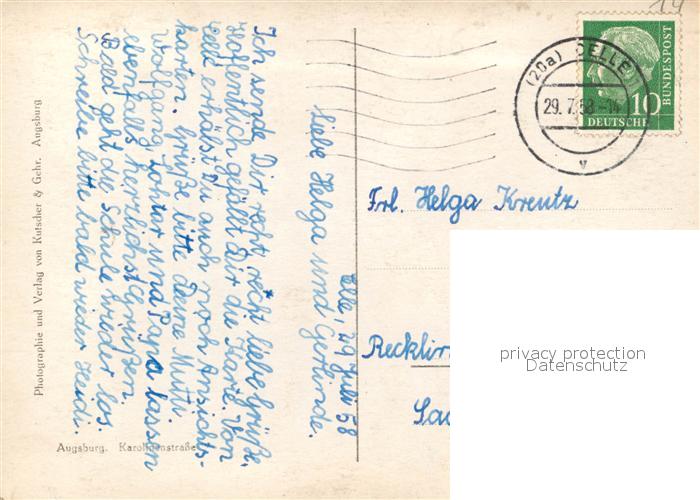 Celle, 29 Juli 58
Liebe Helga und Gerlinde.
Ich sende Dir recht recht liebe Grüße.
Hoffentlich gefällt Dir die Karte. Von
Celle erhälst Du auch noch Ansichts-
karten. Grüße bitte Deine Mutti
Wolfgang, und Papa lassen
ebenfalls herzlichst Grüßen
Bald geht die Schule wieder los.
Schreibe bitte bald wieder Heidi.
Photographie und Verlag von Kutscher & Gehr. Augsburg
Augsburg. Karolinenstraße
(20a) CELLE
29. 7. 58
v
10
DEUTSCHE
BUNDESPOST
14
Frl. Helga Kreutz
privacy protection
Datenschutz